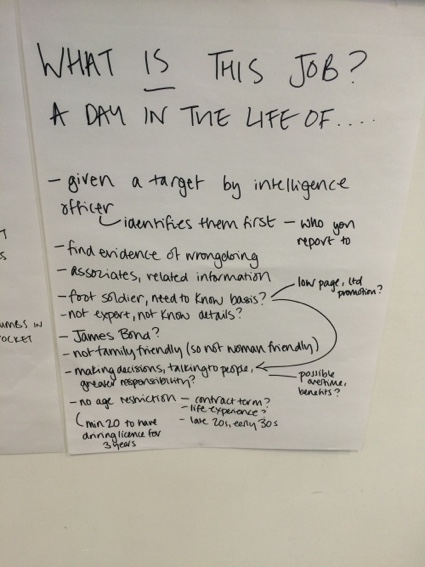 WHAT IS THIS JOB?
A DAY IN THE LIFE OF....
- given a target by intelligence
officer
identifies them first - who you
report to
- find evidence of wrongdoing
- associates, related information
- foot soldier, need to know basis?
low page, ltd
promotion?
- not expert, not know details?
- James Bond?
- not family friendly (so not woman friendly)
- making decisions, talking to people,
greater responsibility?
possible
overtime,
benefits?
- no age restriction
- contract term?
- life experience?
- late 20s, early 30s
min 20 to have
driving licence for
3 years
UMBS IN
OCKET